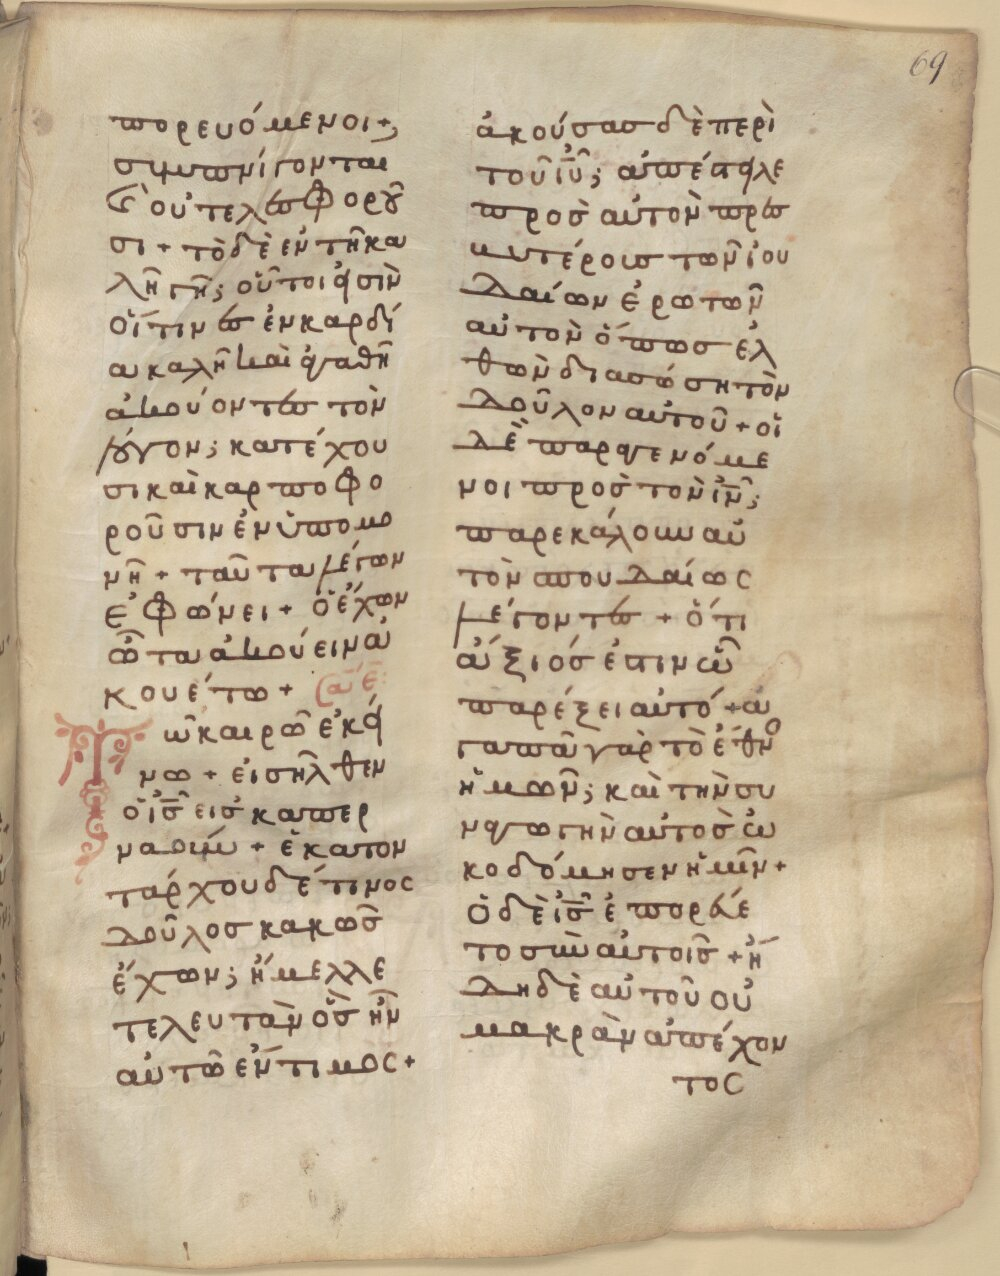 69
πορευόμενοι+;
συμπνίγονται
(καὶ) οὐ τελεσφορού
σι + τὸ δὲ ἐν τῆ κα
λῆ γῆ; οὗτοι εἰσὶν
οἵτινες ἐν καρδί
α καλῆ καὶ ἀγαθῆ
ἀκούοντες τὸν
λόγον; κατέχου
σι καὶ καρποφο
ροῦσιν ἐν ὑπομο
νῆ + ταῦτα λέγων
ἐφώνει + ὁ ἔχων
ὦτα ἀκούειν ἀ
κουέτω +
Τῶ καιρῶ ἐκεί
νω + εἰσῆλθεν
ὁ ἰ̅ς̅ εἰς καπερ
ναούμ + ἑκατον
τάρχου δέ τινος
δοῦλος κακῶς
ἔχων; ἤμελλε
τελευτᾶν ὃς ἦν
αὐτῶ ἔντιμος +
ἀκούσας δὲ περὶ
τοῦ ἰ̅υ̅; ἀπέστειλε
πρὸς αὐτὸν πρεσ
βυτέρους τῶν ἰου
δαίων ἐρωτῶν
αὐτὸν ὅπως ἐλ
θὼν διασώση τὸν
δοῦλον αὐτοῦ + οἱ
δὲ παραγενόμε
νοι πρὸς τὸν ἰ̅ν̅;
παρεκάλουν αὐ
τὸν σπουδαίως
λέγοντες + ὅτι
ἄξιός ἐστιν ὧ
παρέξει αὐτό + ἀ
γαπᾶ γὰρ τὸ ἔθνο
ἡμῶν; καὶ τὴν συ
ναγωγὴν αὐτὸς ὠ
κοδόμησεν ἡμῖν +
Ὁ δὲ ἰ̅ς̅ ἐπορεύε
το σὺν αὐτοῖς + ἤ
δη δὲ αὐτοῦ οὐ
μακρὰν ἀπέχον
τος